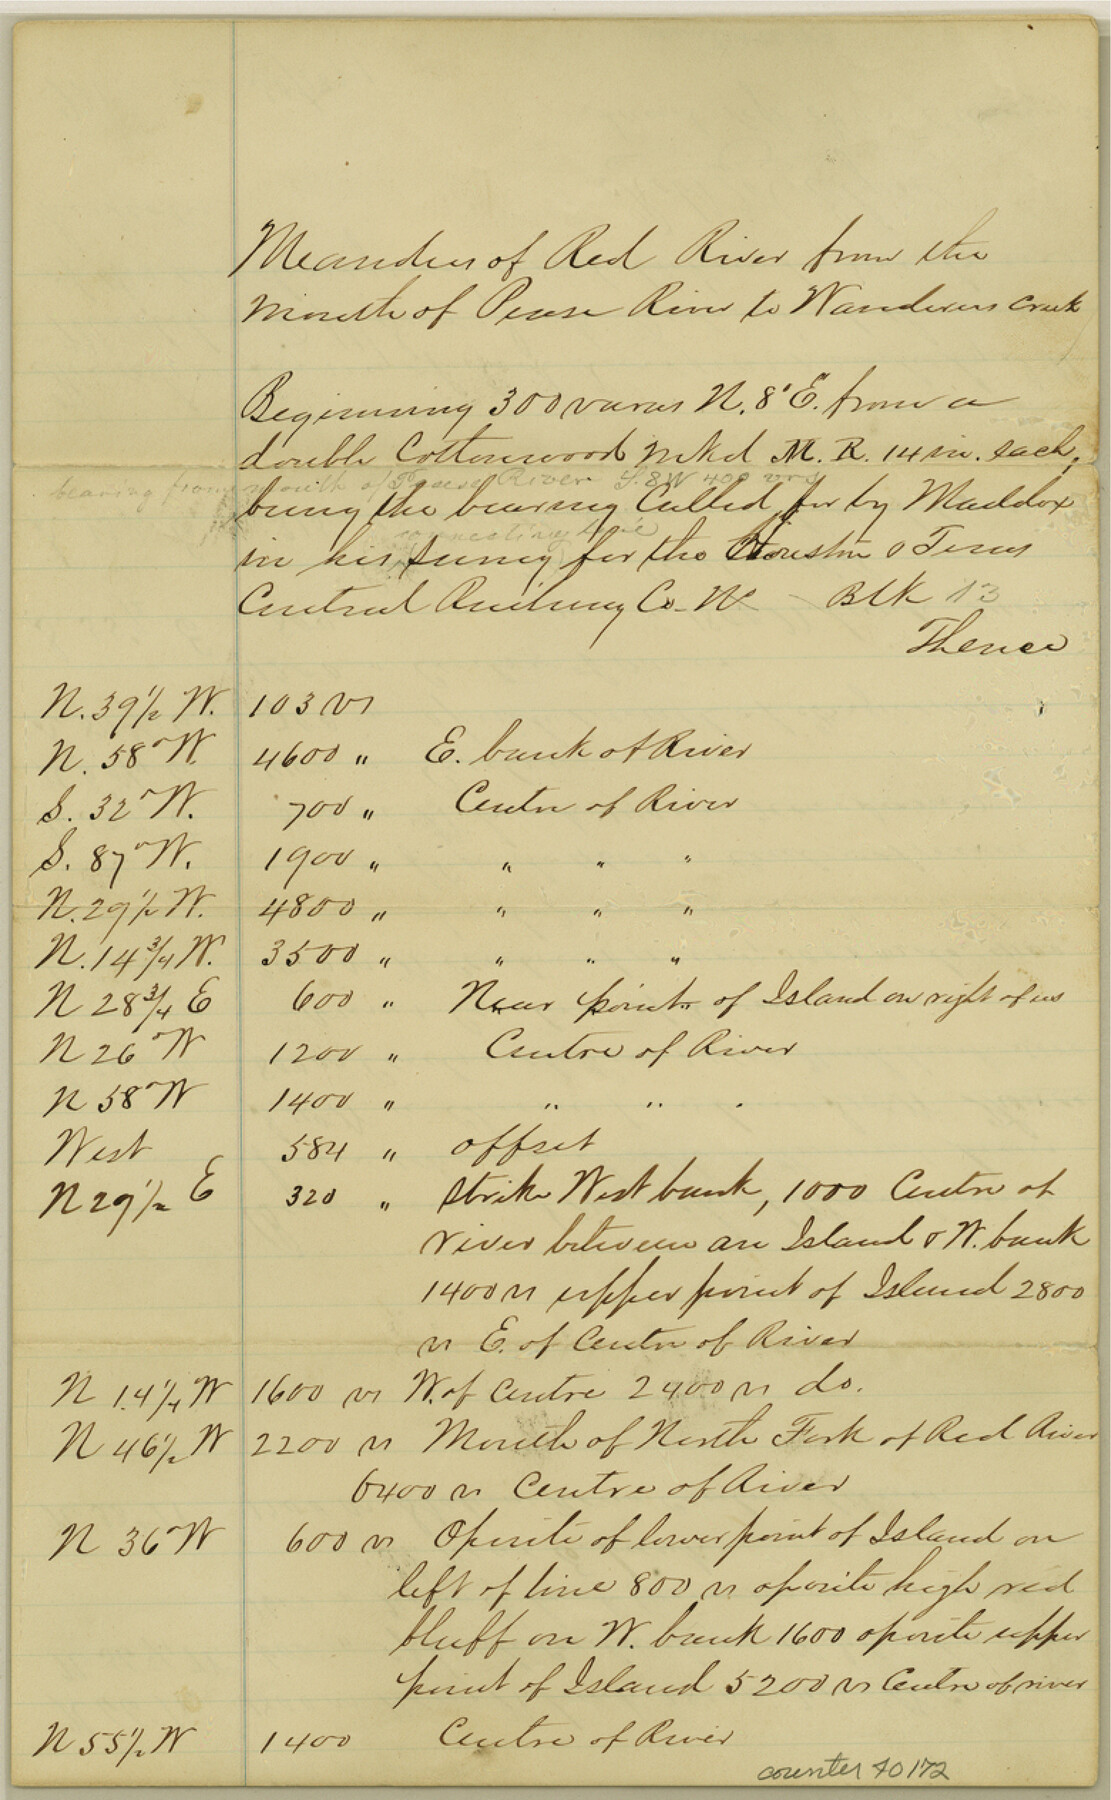 Meanders of Red River from the
mouth of Pease River to Wanderers creek
Beginning 300 varas N. 8° E. from a
double Cottonwood mkd M. R. 14 in. each,
bearing from mouth of Pease River S. 8 W 400 vrs
being the bearing Called for by Maddox
connecting line
in his survey for the Houston & Texas
Central Railway Co. Blk 13
Thence
N. 39 1/2 W. 103 vrs
N. 58° W 4600 " E. bank of River
S. 32° W. 700 " Centre of River
S. 87° W. 1900 " " " "
N. 29 1/2 W. 4800 " " " "
N. 14 3/4 W. 3500 " " " "
N 28 3/4 E 600 " Near point of Island on right of us
N 26° W 1200 " Centre of River
N 58° W 1400 " " " "
West 584 " offset
N 29 1/2 E 320 " strike West bank, 1000 Centre of
river between an Island & W. bank
1400 vrs upper point of Island 2800
vrs E. of Centre of River
N 14 1/4 W 1600 vrs W. of Centre 2400 vrs do.
N 46 1/2 W 2200 vrs Mouth of North Fork of Red River
6400 vrs Centre of River
N 36° W 600 vrs Oposite of lower point of Island on
left of line 800 vrs oposite high red
bluff on W. bank 1600 oposite upper
point of Island 5200 vrs Centre of river
N 55 1/2 W 1400 Centre of River
counter 40172